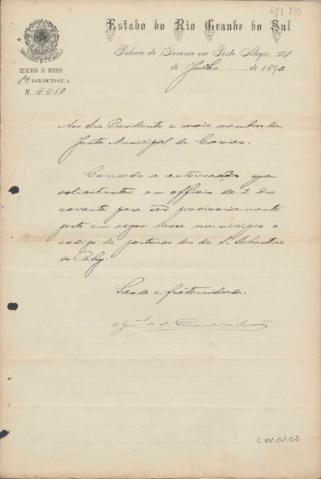 Estado do Rio Grande do Sul
Palacio do Governo em Porto Alegre, 21
de Julho de 1890
SECRETARIA DO INTERIOR
1ª DIRECTORIA
N. 1450
Aos Srs Presidente e mais membros da
Junta Municipal de Caxias.
Concedo a autorisação que
solicitastes em officio de 2 do
corrente para ser provisoriamente
posto em vigor nesse municipio o
codigo de posturas do de S. Sebastião
do Cahy.
Saude e fraternidade.
C 01.02.02